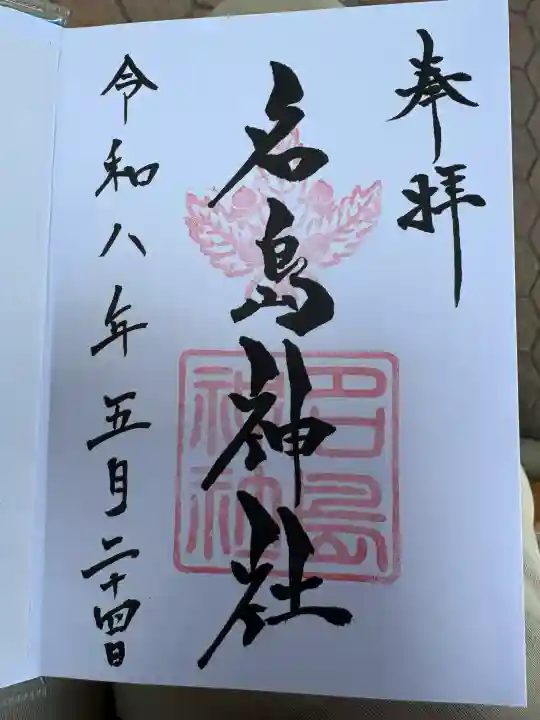 奉拝
名島神社
名島神社
令和八年五月二十四日